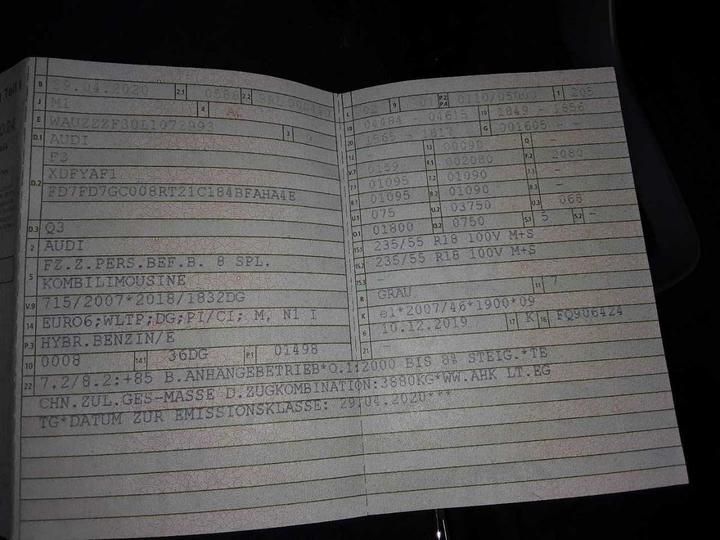 B 29.04.2020 2.1 0588 2.2
J M1 4
E WAUZZZF30L1072993 3
D.1 AUDI
F3
D.2 XDFYAF1
FD7FD7GC008RT21C184BFAHA4E
D.3 Q3
2 AUDI
5 FZ.Z.PERS.BEF.B. 8 SPL.
KOMBILIMOUSINE
V.9 715/2007*2018/1832DG
14 EURO6;WLTP;DG;PI/CI; M, N1 I
P.3 HYBR.BENZIN/E
10 0008 14.1 36DG P.1 01498
L 9 P.2 P.4 T 205
18 04484 - 04615 19 1849 - 1856
20 1565 - 1817 G 001605 - -
12 13 00090 Q -
V.7 0159 F.1 002080 F.2 2080
7.1 01095 7.2 01090 7.3 -
8.1 01095 8.2 01090 8.3 -
U.1 075 U.2 03750 U.3 068
O.1 01800 O.2 0750 S.1 5 S.2 -
15.1 235/55 R18 100V M+S
15.2 235/55 R18 100V M+S
15.3 -
R GRAU 11 7
K e1*2007/46*1900*09
6 10.12.2019 17 K 16 FQ906424
21 -
22 7.2/8.2:+85 B.ANHANGEBETRIEB*O.1:2000 BIS 8% STEIG.*TE
CHN.ZUL.GES-MASSE D.ZUGKOMBINATION:3880KG*WW.AHK LT.EG
TG*DATUM ZUR EMISSIONSKLASSE: 29.04.2020***